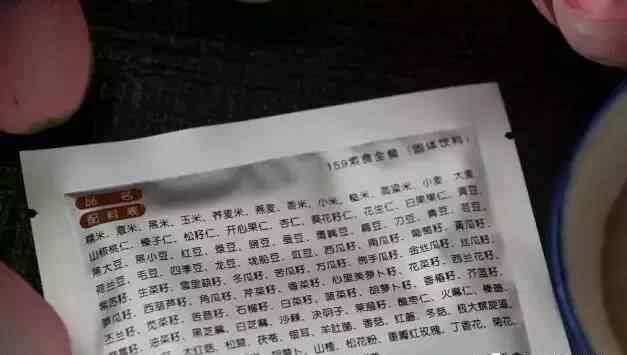 品名 159素食全餐（固体饮料）
配料表
糯米、薏米、黑米、玉米、荞麦米、燕麦、香米、小米、糙米、高粱米、小麦、大麦、
山核桃仁、榛子仁、松籽仁、开心果仁、杏仁、葵花籽仁、花生仁、白果果仁、黄豆、
黑大豆、黑小豆、红豆、绿豆、豌豆、蚕豆、鹰嘴豆、扁豆、刀豆、青豆、芸豆、
荷兰豆、毛豆、四季豆、龙豆、豇豆、西瓜籽、南瓜籽、葡萄籽、黄瓜籽、
紫苏籽、生菜籽、雪里蕻籽、冬瓜籽、苦瓜籽、方瓜籽、佛手瓜籽、金丝瓜籽、丝瓜籽、
萝瓜籽、西葫芦籽、角瓜籽、芹菜籽、香菜籽、心里美萝卜籽、花菜籽、西兰花籽、
木兰籽、茨菜籽、苦苣籽、石榴籽、白菜籽、菠菜籽、胡萝卜籽、香椿籽、芥蓝籽、
油菜籽、黑芝麻、白芝麻、沙棘、决明子、莱菔籽、酸枣仁、火麻仁、
大红菇、松茸、茯苓、银耳、羊肚菌、香菇、红菌、冬菇、极大螺旋藻、
胡萝卜、山楂、松花粉、重瓣红玫瑰、丁香花、菊花、